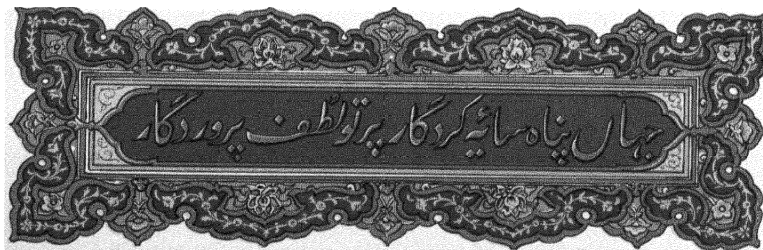 جہاں پناہ سایۂ کردگار پرتو لطف پروردگار